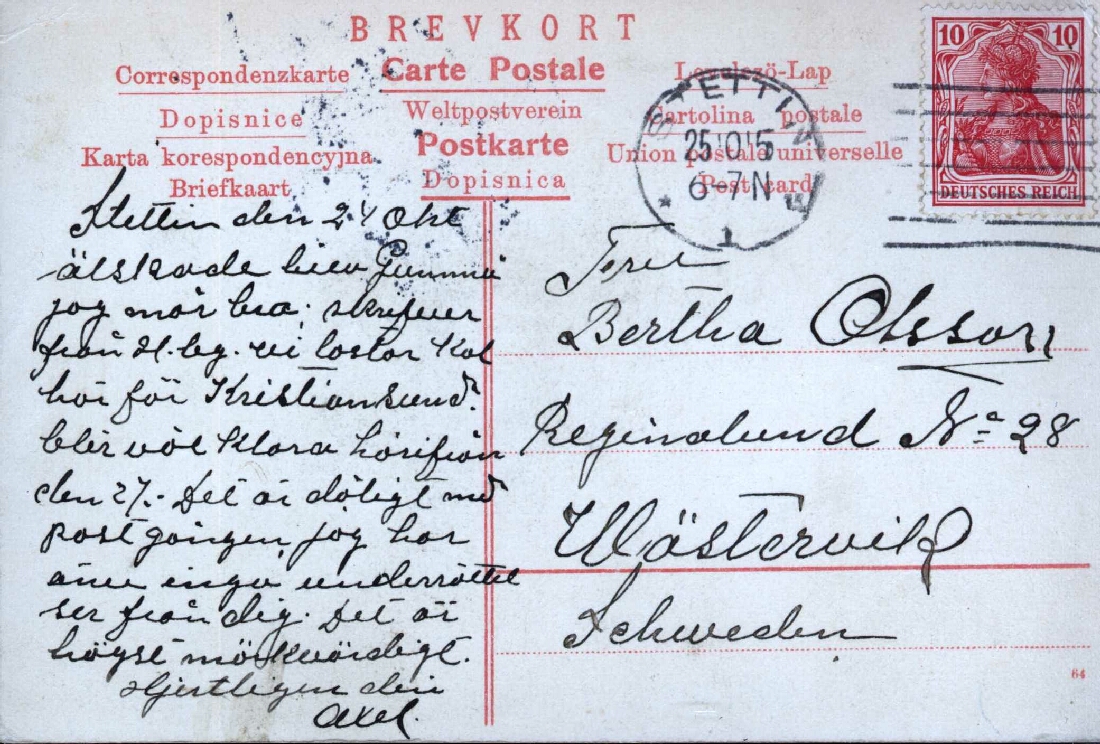 BREVKORT
Correspondenzkarte
Carte Postale
Levelező-Lap
Dopisnice
Weltpostverein
Cartolina postale
Karta korespondencyjna
Postkarte
Union postale universelle
Briefkaart
Dopisnica
Post card
STETTIN
25 10 15
6-7N
1
10 10
DEUTSCHES REICH
Stettin den 24 Okt
älskade lilla Gumma
jog mår bra. skrifver
från H.bg. vi lastar Kol
här för Kristiansund.
blir väl Klara härifrån
den 27.- Det är dåligt med
postgången, jag har
ännu inga underrättel
ser från dig. Det är
högst märkvärdigt.
Hjertligen din
Axel.
Fru
Bertha Olsson
Reginalund No 28
Wästervik
Schweden
64